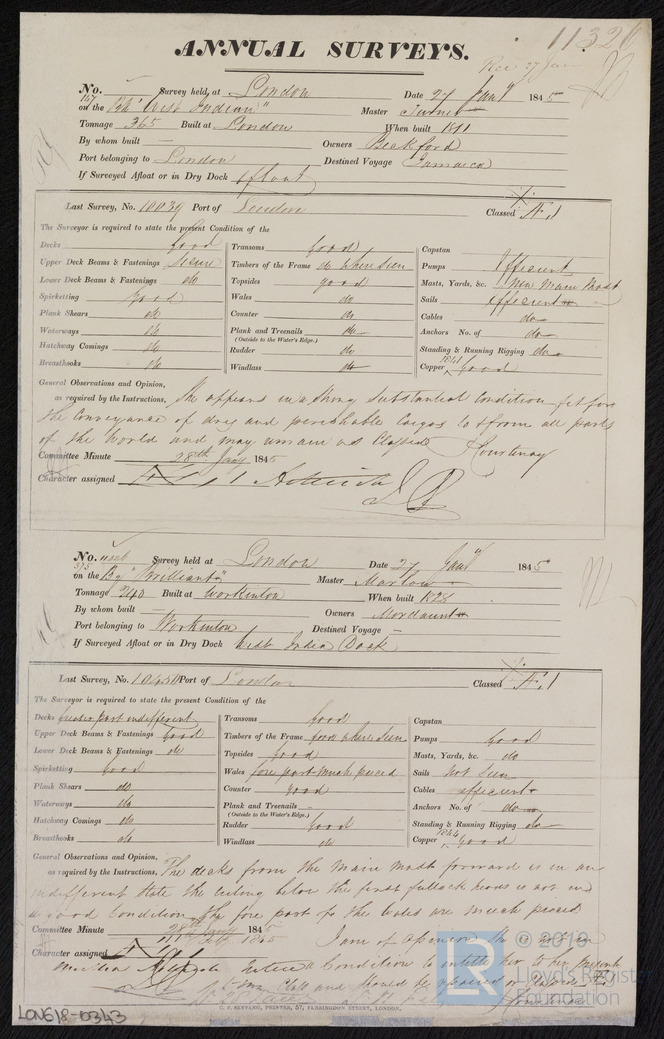 11320
ANNUAL SURVEYS.
Rec 27 Jan
No. 167 Survey held at London Date 27 Jany 1845
on the Bk "West Indian" Master Turner
Tonnage 365 Built at London When built 1811
By whom built — Owners Beckford
Port belonging to London Destined Voyage Jamaica
If Surveyed Afloat or in Dry Dock Afloat
Last Survey, No. 10039 Port of London Classed Æ 1
The Surveyor is required to state the present Condition of the
Decks good
Upper Deck Beams & Fastenings Secure
Lower Deck Beams & Fastenings do
Spirketting good
Plank Shears do
Waterways do
Hatchway Comings do
Breasthooks do
Transoms good
Timbers of the Frame do where seen
Topsides good
Wales do
Counter do
Plank and Treenails do
(Outside to the Water's Edge.)
Rudder do
Windlass do
Capstan
Pumps Efficient
Masts, Yards, &c. New Main Mast
Sails efficient
Cables do
Anchors No. of do
Standing & Running Rigging do
Copper 1841 good
General Observations and Opinion,
as required by the Instructions, She appears in a strong substantial condition fit for
the conveyance of dry and perishable cargos to & from all parts
of the World and may remain as Classed Courtenay
Committee Minute 28th Jany 1845
Character assigned Æ 1
No. 375 Survey held at London Date 27 Jany 1845
on the Bg "Brilliant" Master Marlow
Tonnage 240 Built at Workinton When built 1828
By whom built — Owners Mordaunt
Port belonging to Workinton Destined Voyage —
If Surveyed Afloat or in Dry Dock West India Dock
Last Survey, No. 10450 Port of London Classed Æ 1
The Surveyor is required to state the present Condition of the
Decks greater part indifferent
Upper Deck Beams & Fastenings Good
Lower Deck Beams & Fastenings do
Spirketting Good
Plank Shears do
Waterways do
Hatchway Comings do
Breasthooks do
Transoms Good
Timbers of the Frame good where seen
Topsides Good
Wales fore part much pieced
Counter Good
Plank and Treenails —
(Outside to the Water's Edge.)
Rudder Good
Windlass do
Capstan
Pumps Good
Masts, Yards, &c. do
Sails Not Seen
Cables efficient
Anchors No. of do
Standing & Running Rigging do
Copper 1844 good
General Observations and Opinion,
as required by the Instructions, The decks from the Main Mast forward is in an
indifferent state the ceiling below the first futtock heads is not in
a good Condition. The fore part of the Wales are much pieced
Committee Minute 28th Jany 1845
I am of Opinion She is not in
Character assigned Æ 1
a Condition to entitle her to her present
Class and should be
© 2019
Lloyd's Register
Foundation
LR
C. F. SEYFANG, PRINTER, 57, FARRINGDON STREET, LONDON.
LON618-0343